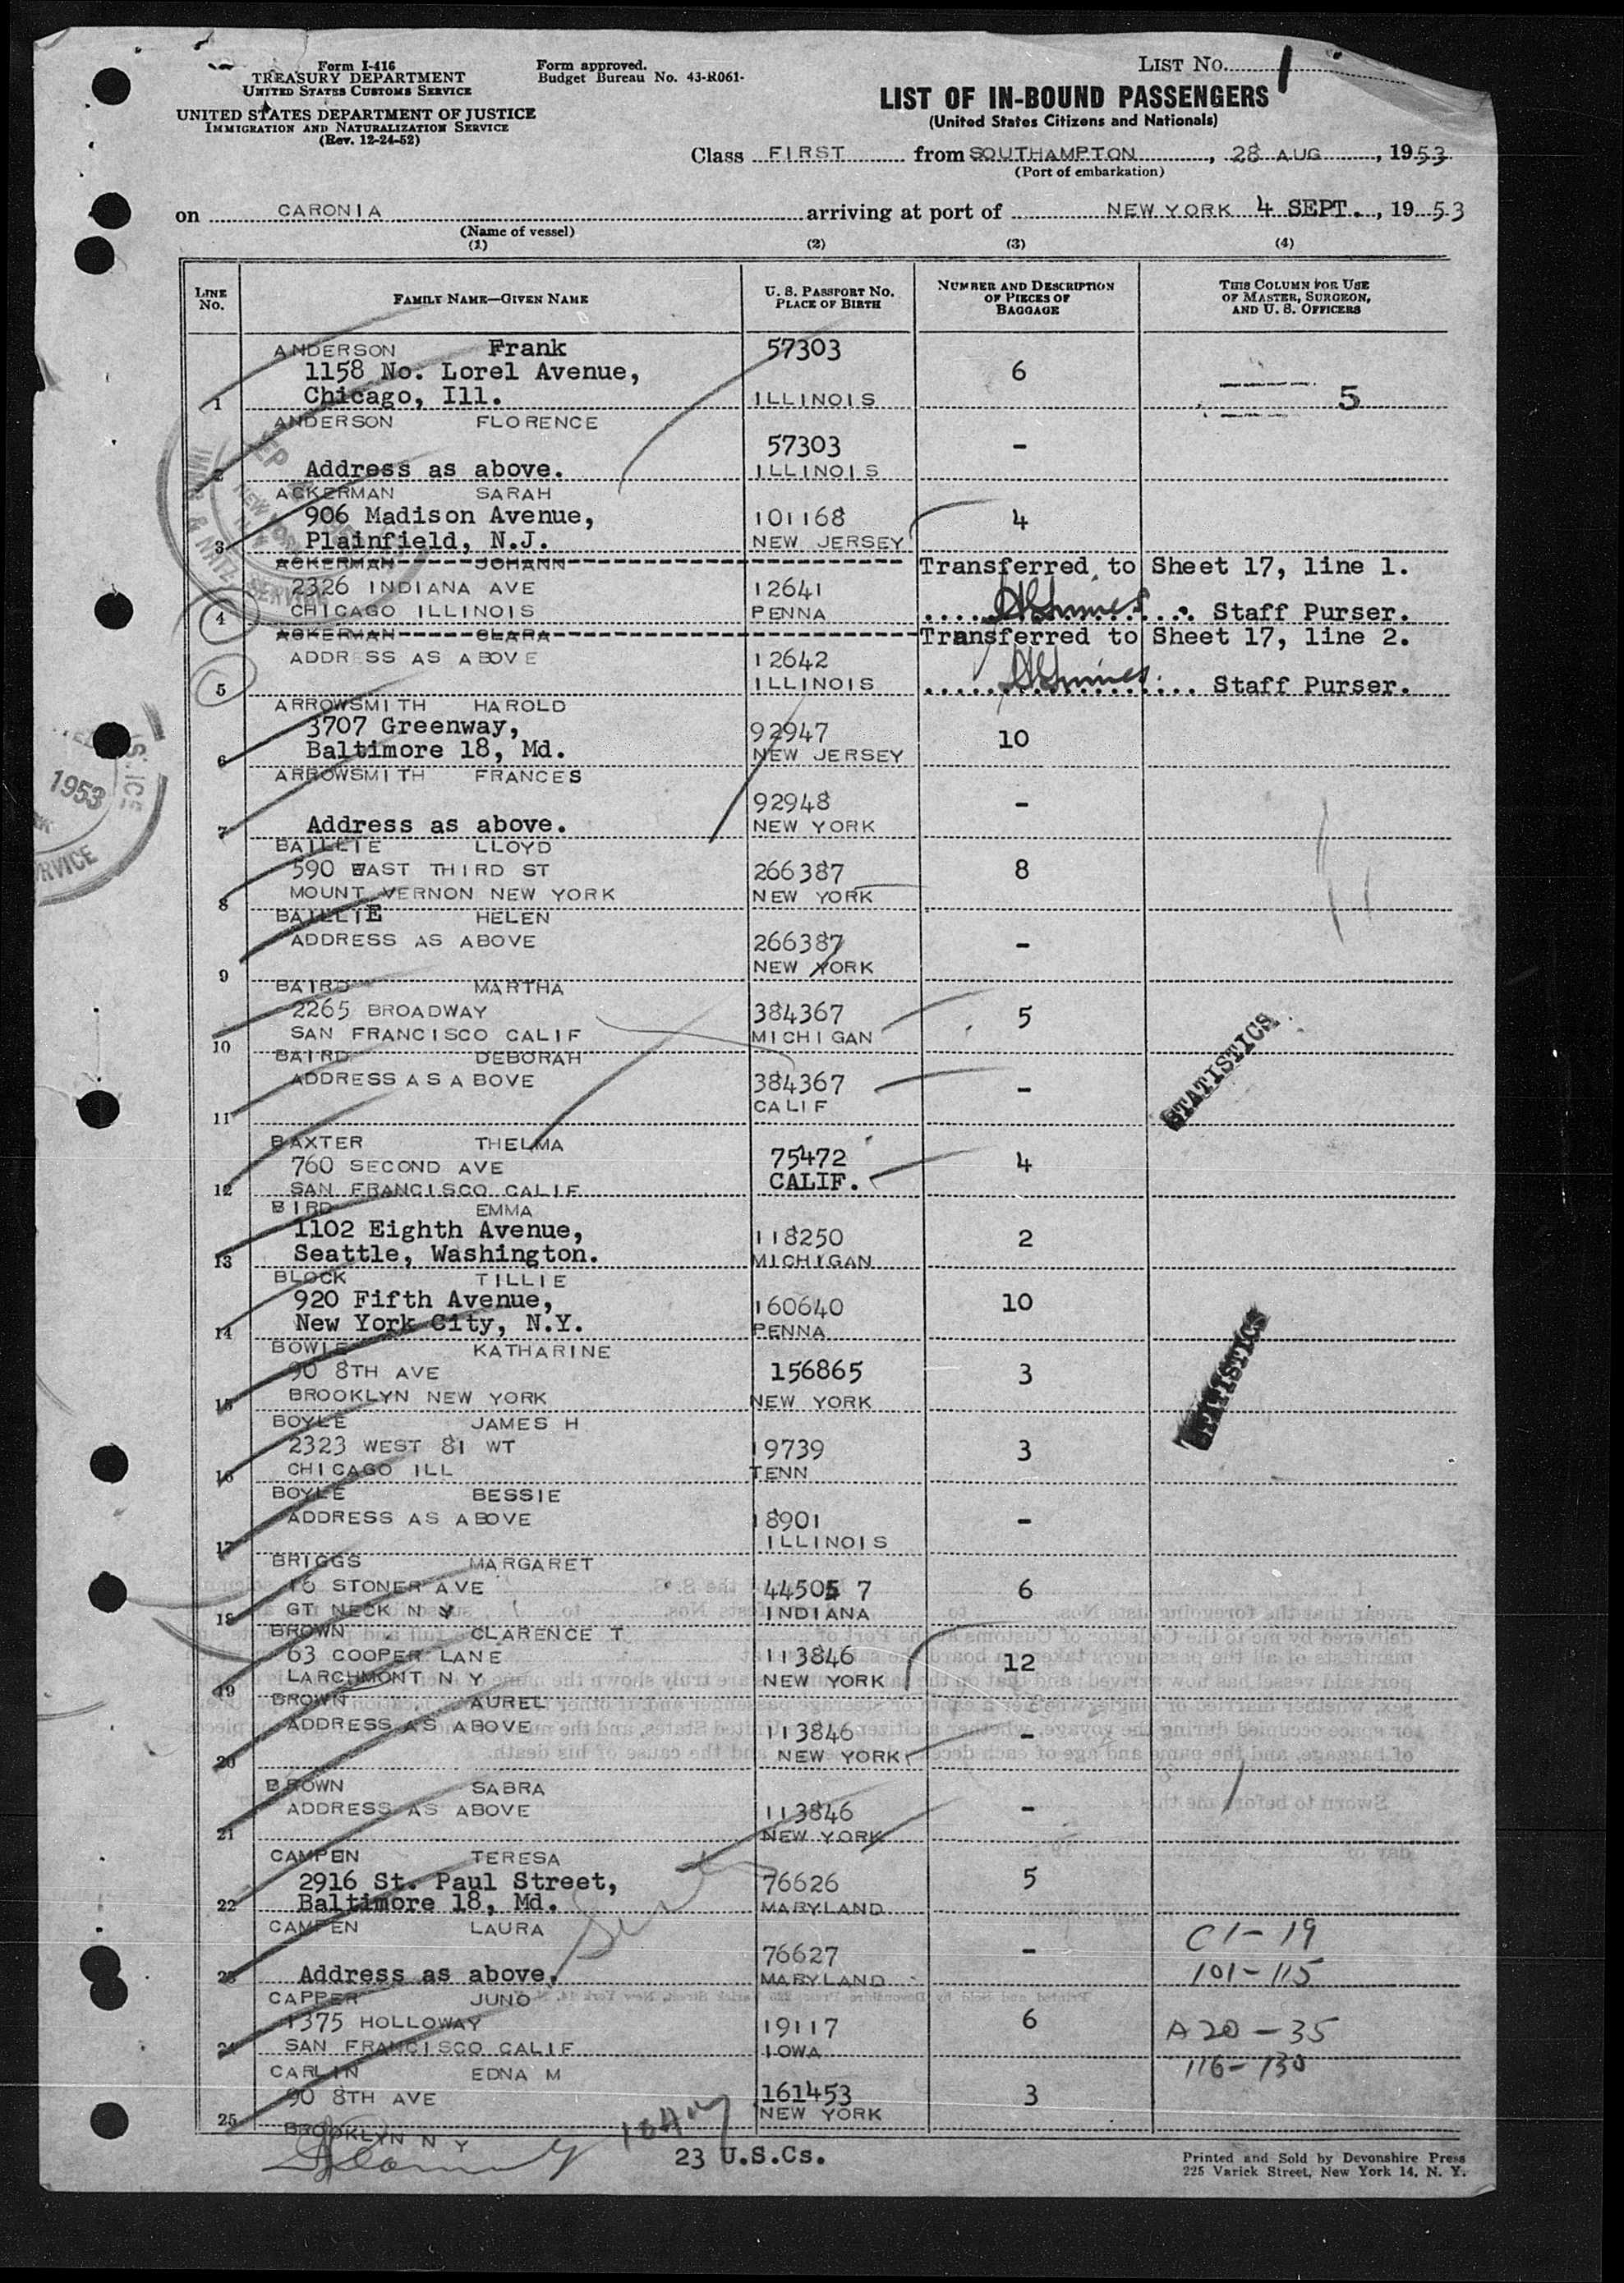 Form I-416
TREASURY DEPARTMENT
UNITED STATES CUSTOMS SERVICE
UNITED STATES DEPARTMENT OF JUSTICE
IMMIGRATION AND NATURALIZATION SERVICE
(Rev. 12-24-52)
Form approved.
Budget Bureau No. 43-R061-
LIST NO. 1
LIST OF IN-BOUND PASSENGERS
(United States Citizens and Nationals)
Class FIRST from SOUTHAMPTON, 28 AUG, 1953
(Port of embarkation)
on CARONIA arriving at port of NEW YORK 4 SEPT., 1953
(Name of vessel)
(1) (2) (3) (4)
LINE NO.
FAMILY NAME—GIVEN NAME
U. S. PASSPORT NO.
PLACE OF BIRTH
NUMBER AND DESCRIPTION
OF PIECES OF
BAGGAGE
THIS COLUMN FOR USE
OF MASTER, SURGEON,
AND U. S. OFFICERS
ANDERSON Frank 57303
1158 No. Lorel Avenue, 6
1 Chicago, Ill. ILLINOIS 5
ANDERSON FLORENCE
57303 -
2 Address as above. ILLINOIS
ACKERMAN SARAH
906 Madison Avenue, 101168 4
3 Plainfield, N.J. NEW JERSEY
ACKERMAN JOHANN Transferred to Sheet 17, line 1.
2326 INDIANA AVE 12641
4 CHICAGO ILLINOIS PENNA Staff Purser.
ACKERMAN CLARA Transferred to Sheet 17, line 2.
ADDRESS AS ABOVE 12642
5 ILLINOIS Staff Purser.
ARROWSMITH HAROLD
3707 Greenway, 92947 10
6 Baltimore 18, Md. NEW JERSEY
ARROWSMITH FRANCES
92948 -
7 Address as above. NEW YORK
BAILLIE LLOYD
590 EAST THIRD ST 266387 8
8 MOUNT VERNON NEW YORK NEW YORK
BAILLIE HELEN
ADDRESS AS ABOVE 266387 -
9 NEW YORK
BAIRD MARTHA
2265 BROADWAY 384367 5
10 SAN FRANCISCO CALIF MICHIGAN
BAIRD DEBORAH
ADDRESS AS A BOVE 384367 -
11 CALIF
STATISTICS
BAXTER THELMA
760 SECOND AVE 75472 4
12 SAN FRANCISCO CALIF CALIF.
BIRD EMMA
1102 Eighth Avenue, 118250 2
13 Seattle, Washington. MICHIGAN
BLOCK TILLIE
920 Fifth Avenue, 160640 10
14 New York City, N.Y. PENNA
STATISTICS
BOWLE KATHARINE
90 8TH AVE 156865 3
15 BROOKLYN NEW YORK NEW YORK
BOYLE JAMES H
2323 WEST 81 WT 19739 3
16 CHICAGO ILL TENN
BOYLE BESSIE
ADDRESS AS ABOVE 18901 -
17 ILLINOIS
BRIGGS MARGARET
16 STONER AVE 44505 7 6
18 GT NECK N Y INDIANA
BROWN CLARENCE T
63 COOPER LANE 113846 12
19 LARCHMONT N Y NEW YORK
BROWN AUREL
ADDRESS AS ABOVE 113846 -
20 NEW YORK
BROWN SABRA
ADDRESS AS ABOVE 113846 -
21 NEW YORK
CAMPEN TERESA
2916 St. Paul Street, 76626 5
22 Baltimore 18, Md. MARYLAND
CAMPEN LAURA C1-19
76627 -
23 Address as above. MARYLAND 101-115
CAPPER JUNO
1375 HOLLOWAY 19117 6 A20-35
24 SAN FRANCISCO CALIF IOWA
CARLIN EDNA M 116-130
90 8TH AVE 161453 3
25 BROOKLYN N Y NEW YORK
23 U.S.Cs.
Printed and Sold by Devonshire Press
225 Varick Street, New York 14, N. Y.
1953
SERVICE